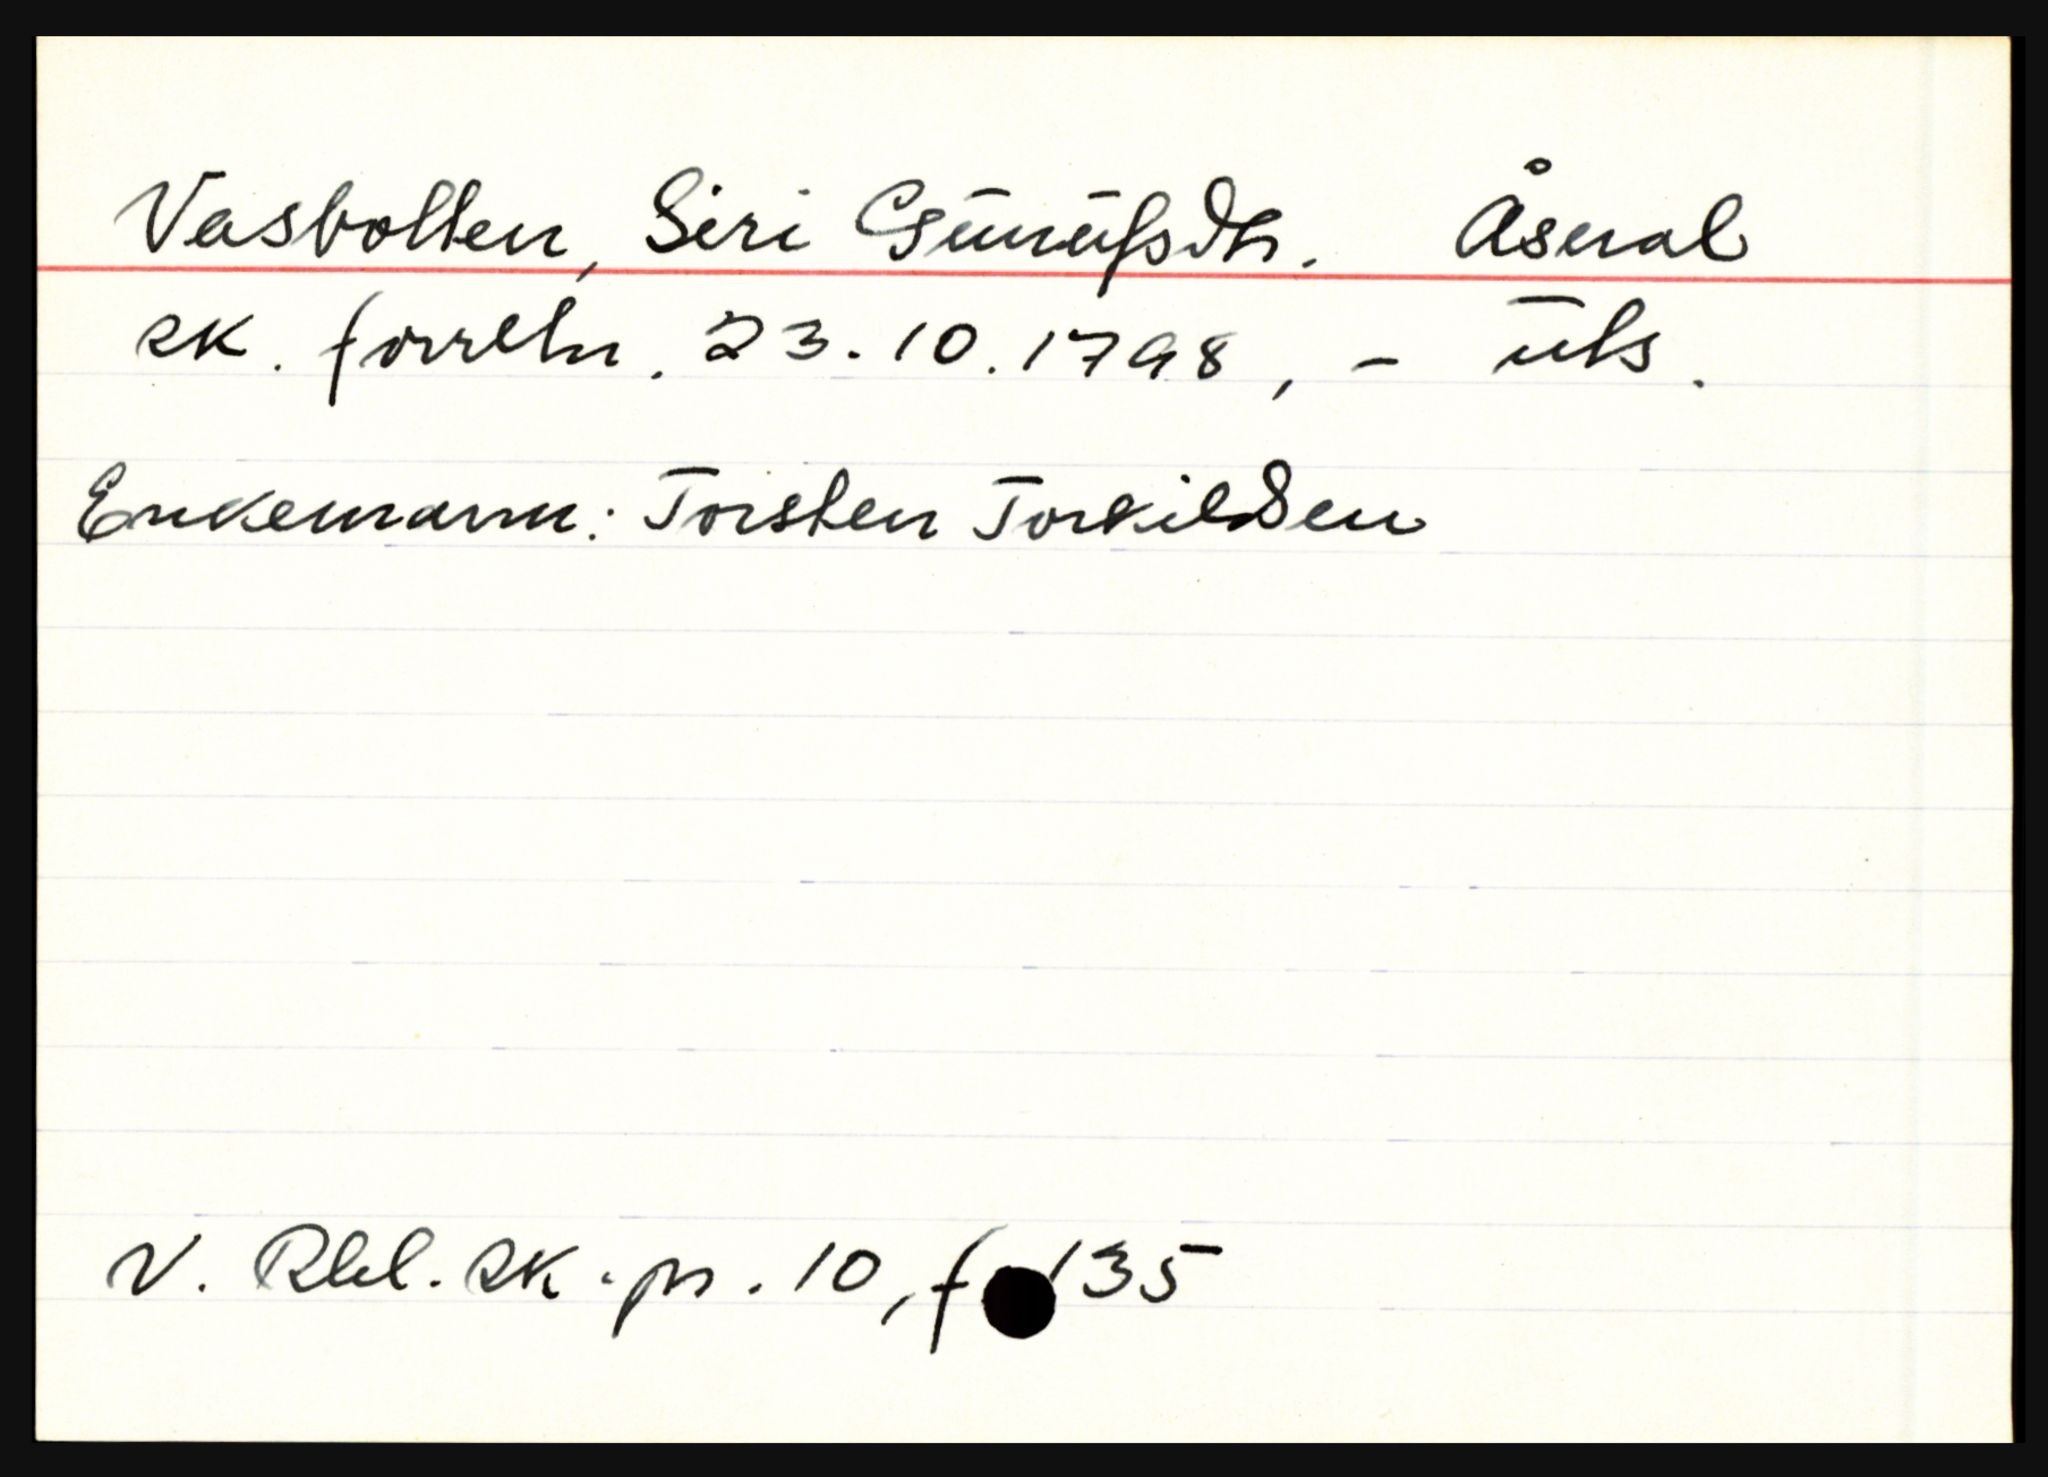 Vasbotten, Siri Gunufsdtr. Åseral
sk. forretn. 23.10.1798, - uts.
Enkemann: Torsten Torkildsen
V. Rbl. sk. pr. 10, f 135